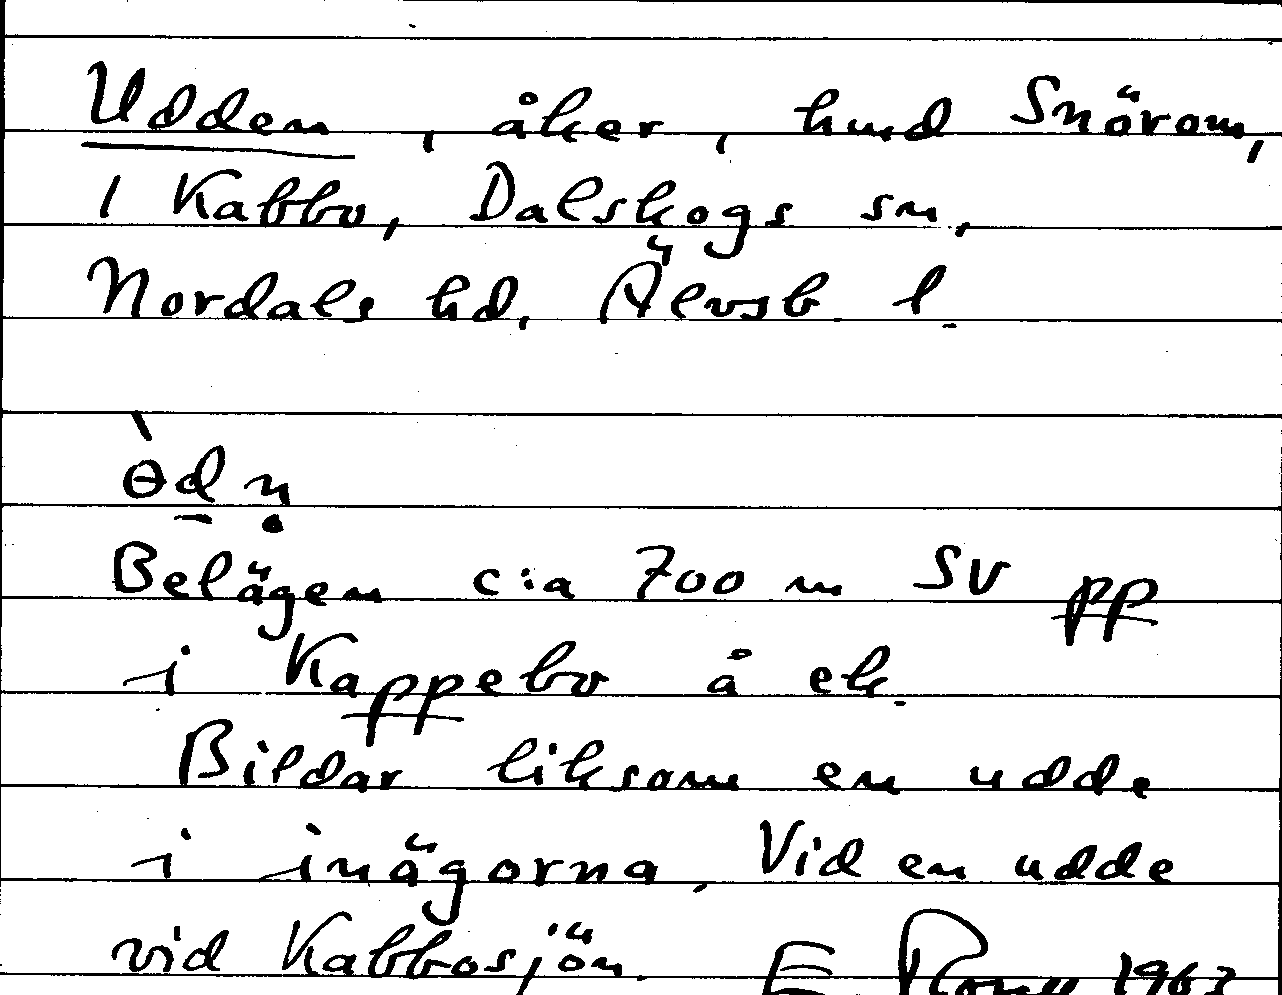 Udden, åker, hmd Snörom,
1 Kabbo, Dalskogs sn,
Nordals hd, Älvsb. l.
ɵ̀dn̥
Belägen c:a 700 m SV pp
i Kappebo å ek.
Bildar liksom en udde
i inägorna. Vid en udde
vid Kabbosjön. E 1963